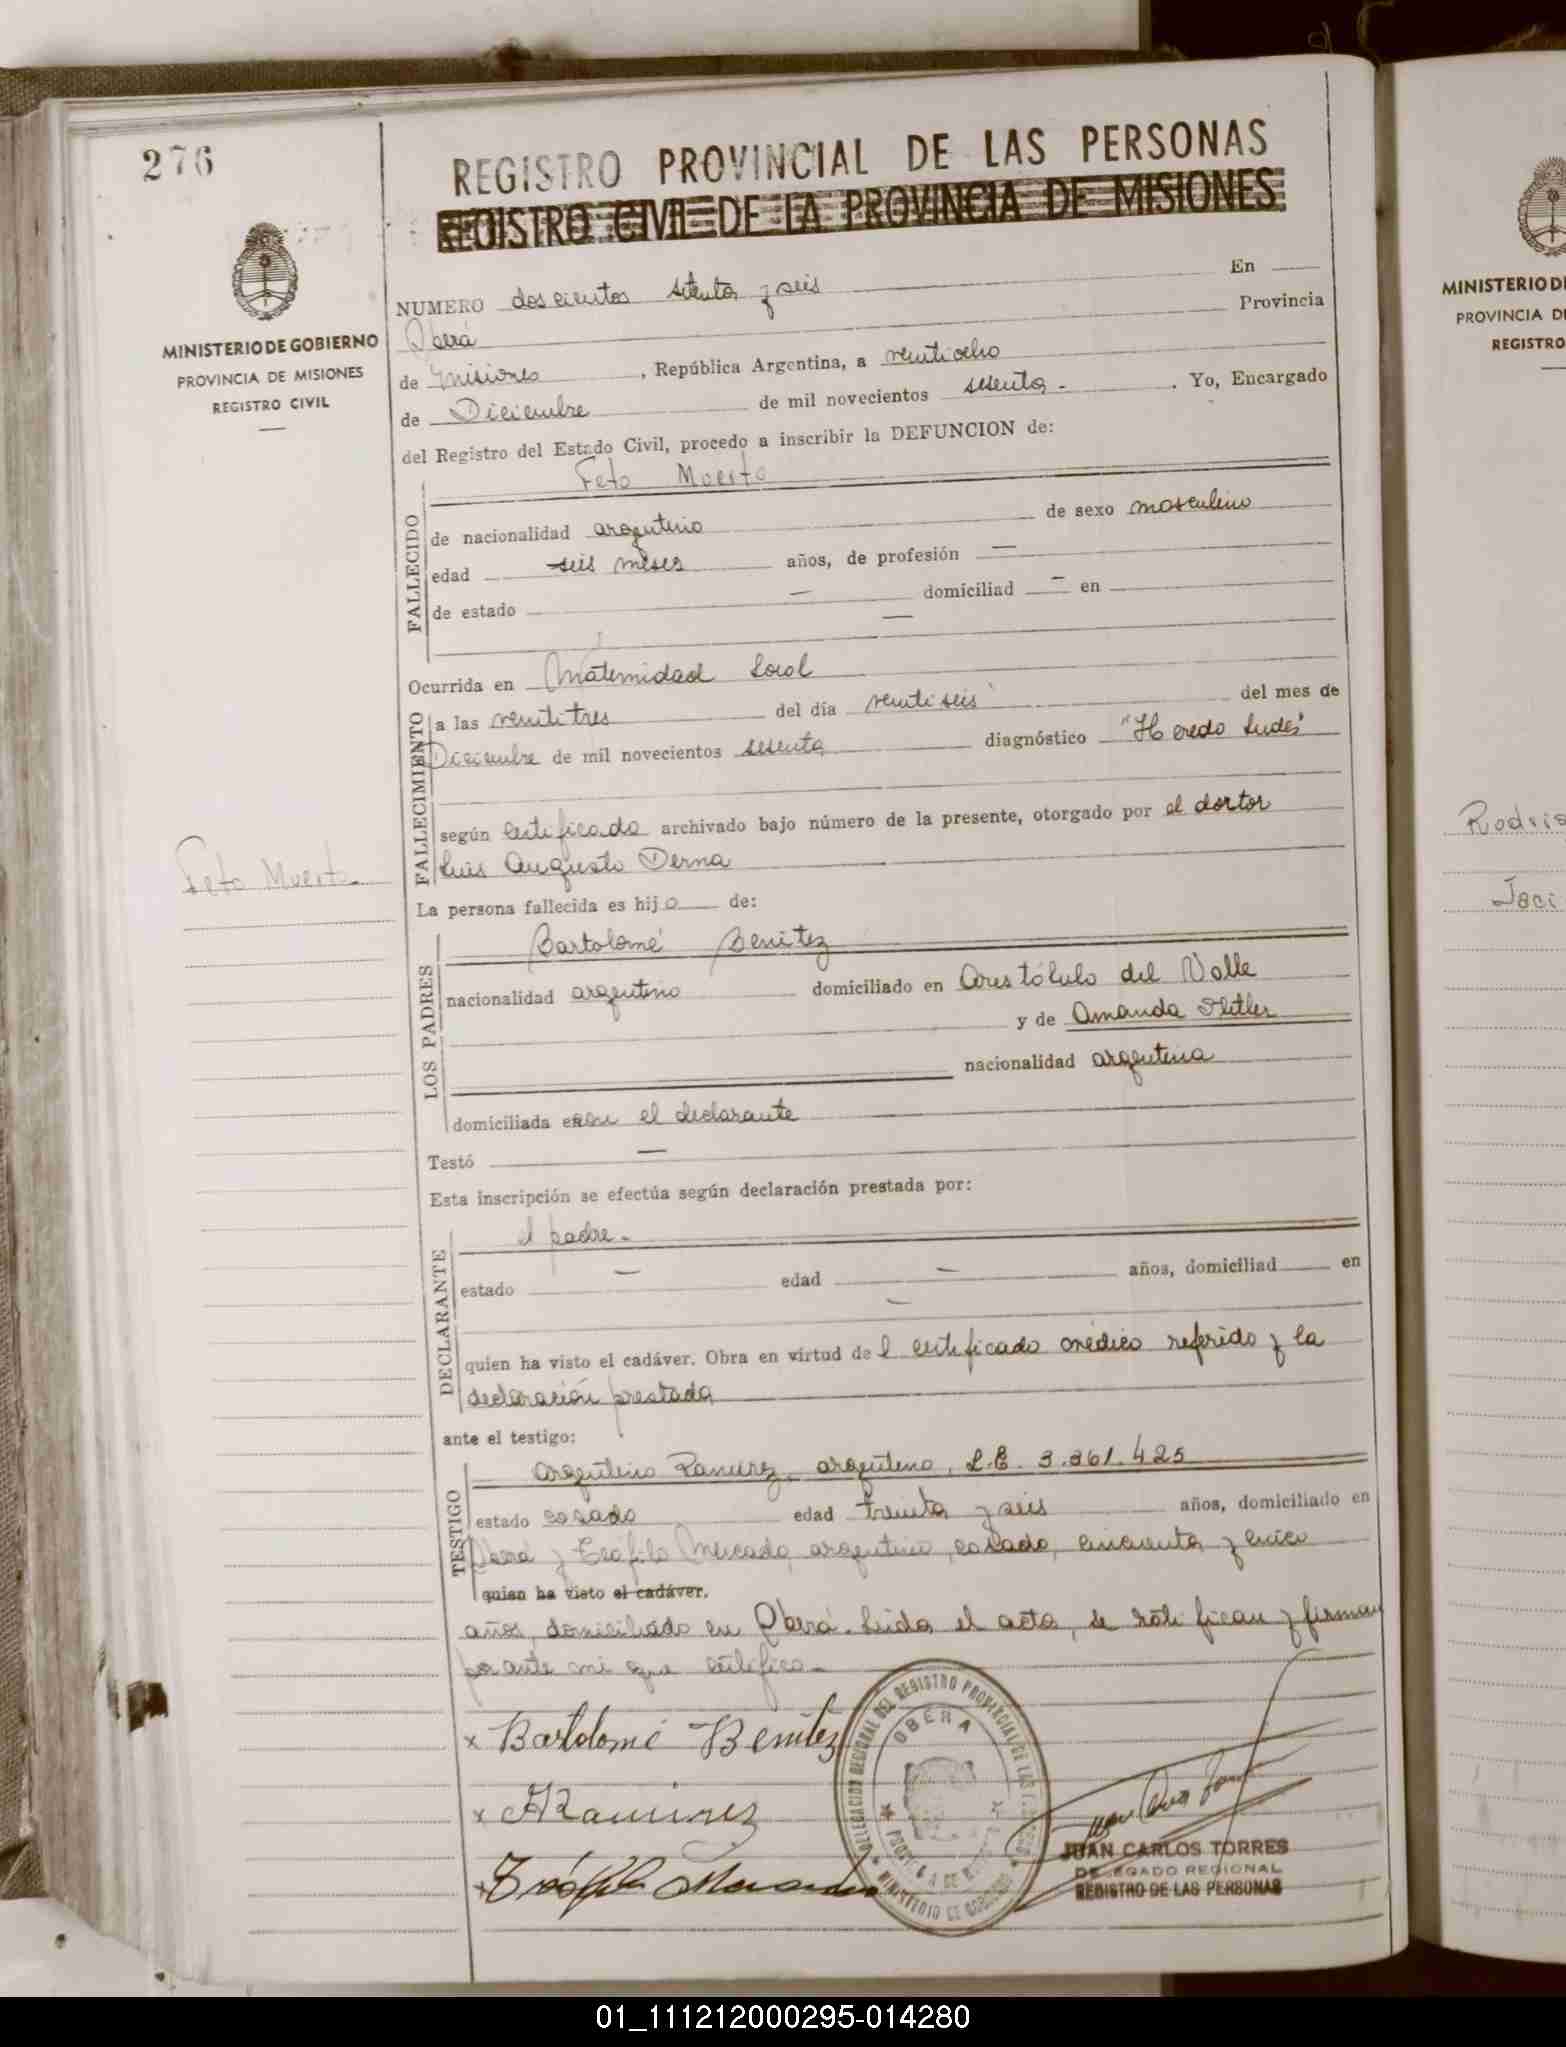 276
REGISTRO PROVINCIAL DE LAS PERSONAS
REGISTRO CIVIL DE LA PROVINCIA DE MISIONES
MINISTERIO DE GOBIERNO
PROVINCIA DE MISIONES
REGISTRO CIVIL
NUMERO doscientos setenta y seis En
Oberá Provincia
de Misiones, República Argentina, a veintiocho
de Diciembre de mil novecientos sesenta.- . Yo, Encargado
del Registro del Estado Civil, procedo a inscribir la DEFUNCION de:
Feto Muerto
FALLECIDO
de nacionalidad argentino de sexo masculino
edad seis meses años, de profesión —
de estado — domiciliad — en
—
Ocurrida en Maternidad Local
FALLECIMIENTO
a las veintitres del día veintiseis del mes de
Diciembre de mil novecientos sesenta diagnóstico "Heredo Ludes"
según certificado archivado bajo número de la presente, otorgado por el doctor
Luis Augusto Derna
Feto Muerto
La persona fallecida es hijo de:
LOS PADRES
Bartolomé Benitez
nacionalidad argentino domiciliado en Aristóbulo del Valle
y de Amanda
nacionalidad argentina
domiciliada con el declarante
Testó —
Esta inscripción se efectúa según declaración prestada por:
DECLARANTE
el padre.-
estado — edad — años, domiciliad en
—
quien ha visto el cadáver. Obra en virtud del certificado médico referido y la
declaración prestada
ante el testigo:
TESTIGO
Argentino Ramirez, argentino, L.E. 3.361.425
estado casado edad treinta y seis años, domiciliado en
Oberá y Teófilo Mercado, argentino, casado, cincuenta y cinco
quien ha visto el cadáver.
años, domiciliado en Oberá. Leida el acta, se ratifican y firman
por ante mi que certifico.-
x Bartolomé Benitez
x ARamirez
x Teófilo Mercado
DELEGACION REGIONAL DEL REGISTRO PROVINCIAL DE LAS PERSONAS
OBERA
MINISTERIO DE GOBIERNO
JUAN CARLOS TORRES
DELEGADO REGIONAL
REGISTRO DE LAS PERSONAS
MINISTERIO DE
PROVINCIA DE
REGISTRO
Jaci
01_111212000295-014280